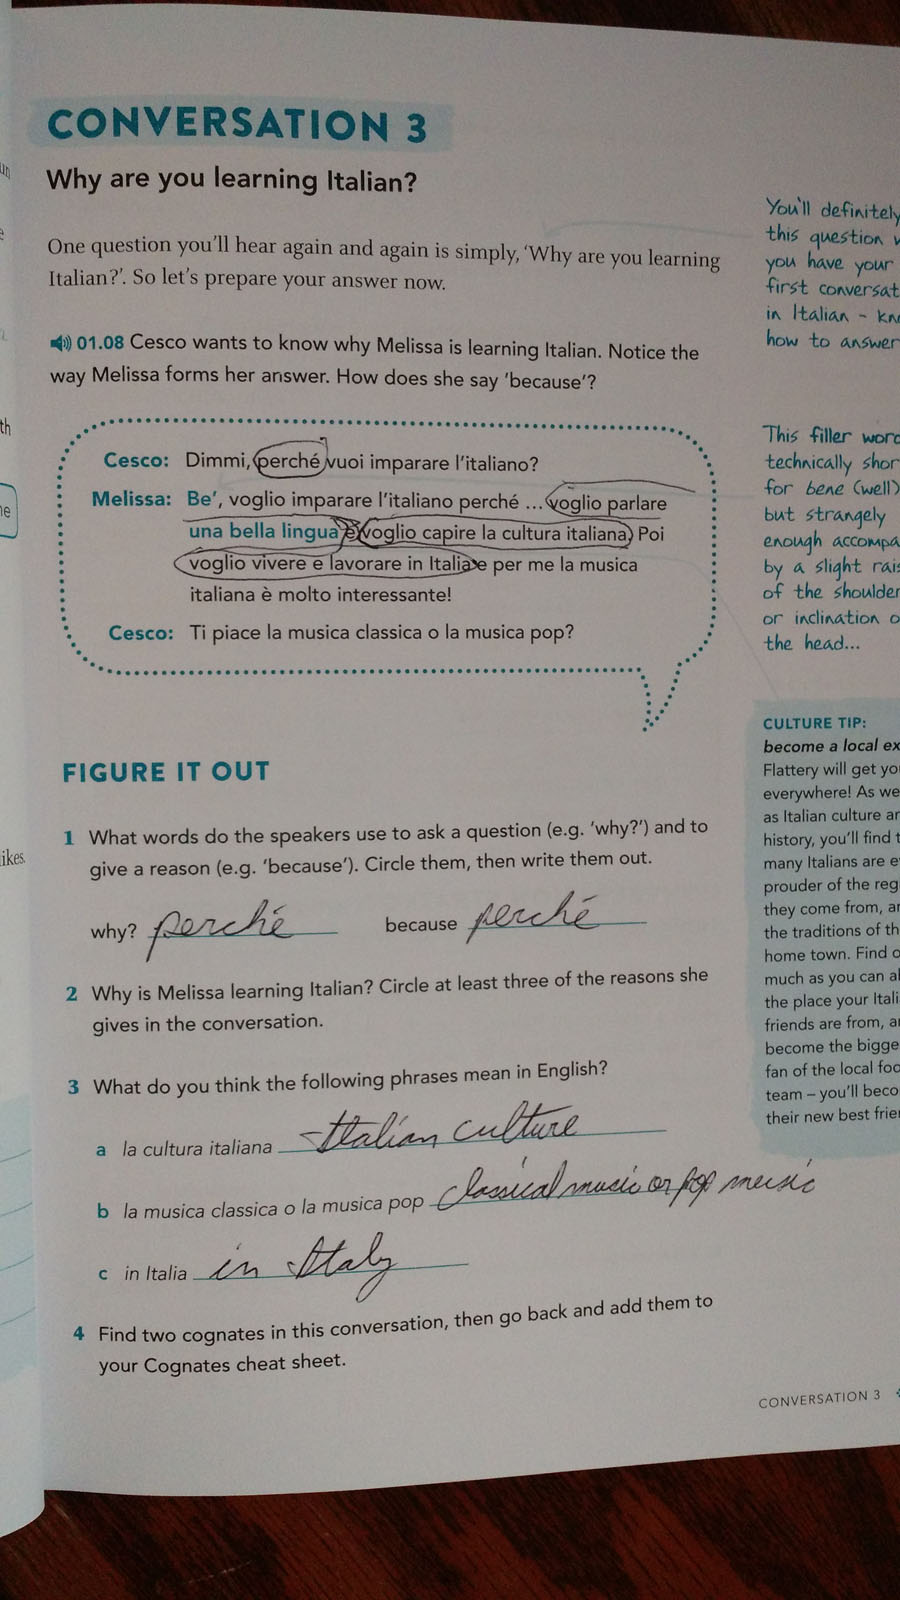 CONVERSATION 3
Why are you learning Italian?
One question you'll hear again and again is simply, 'Why are you learning
Italian?'. So let's prepare your answer now.
01.08 Cesco wants to know why Melissa is learning Italian. Notice the
way Melissa forms her answer. How does she say 'because'?
Cesco: Dimmi, perché vuoi imparare l'italiano?
Melissa: Be', voglio imparare l'italiano perché ... voglio parlare
una bella lingua e voglio capire la cultura italiana. Poi
voglio vivere e lavorare in Italia e per me la musica
italiana è molto interessante!
Cesco: Ti piace la musica classica o la musica pop?
FIGURE IT OUT
1 What words do the speakers use to ask a question (e.g. 'why?') and to
give a reason (e.g. 'because'). Circle them, then write them out.
why? perché because perché
2 Why is Melissa learning Italian? Circle at least three of the reasons she
gives in the conversation.
3 What do you think the following phrases mean in English?
a la cultura italiana Italian culture
b la musica classica o la musica pop classical music or pop music
c in Italia in Italy
4 Find two cognates in this conversation, then go back and add them to
your Cognates cheat sheet.
You'll definitely
this question
you have your
first
in Italian -
how to answer
This filler
technically
for bene (well)
but strangely
enough
by a slight
of the
or inclination
the head...
CULTURE TIP:
become a local
Flattery will get
everywhere! As
as Italian culture
history, you'll find
many Italians are
prouder of the
they come from,
the traditions of
home town. Find
much as you can
the place your
friends are from,
become the
fan of the local
team – you'll
their new best
CONVERSATION 3
ikes.
th